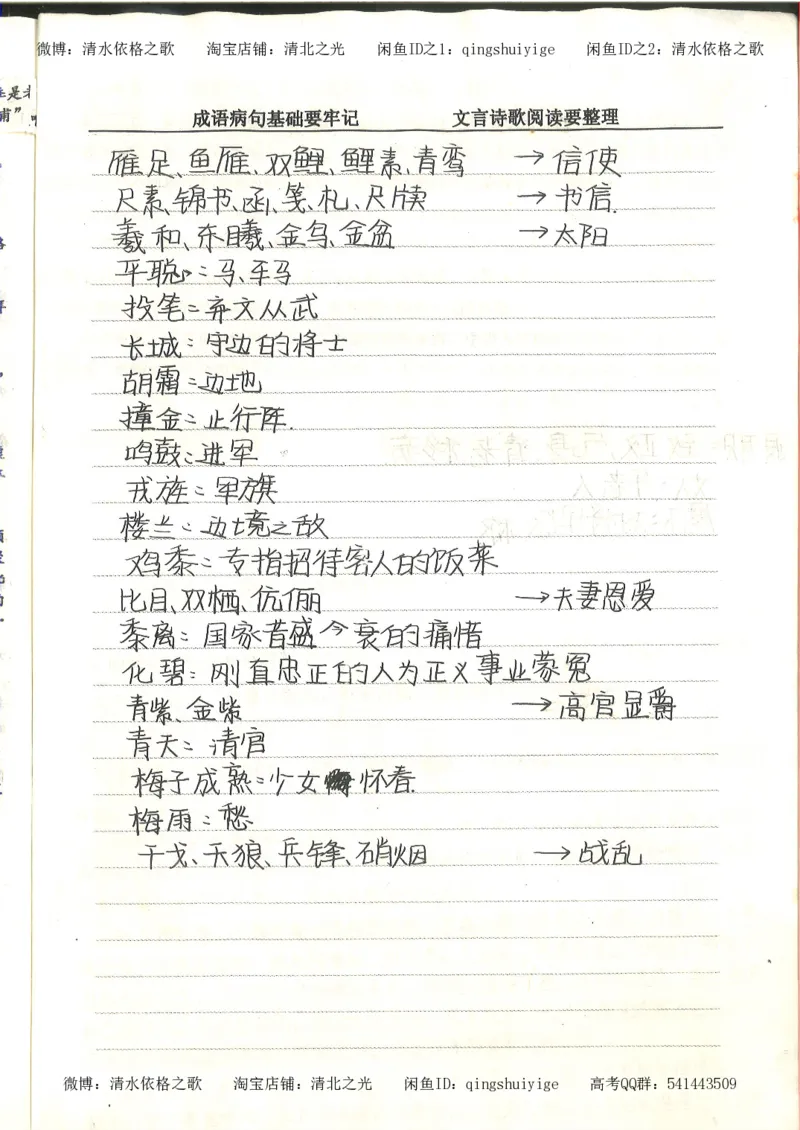 微博：清水依格之歌 淘宝店铺：清北之光 闲鱼ID之1：qingshuiyige 闲鱼ID之2：清水依格之歌
成语病句基础要牢记 文言诗歌阅读要整理
雁足、鱼雁、双鲤、鲤素、青鸾 → 信使
尺素、锦书、函、笺、札、尺牍 → 书信.
羲和、东曦、金乌、金盆 → 太阳
平聪：马、车马
投笔：弃文从武
长城：守边的将士
胡霜：边地
撞金：止行阵.
鸣鼓：进军
戎旌：军旗
楼兰：边境之敌
鸡黍：专指招待客人的饭菜
比目、双栖、伉俪 → 夫妻恩爱
黍离：国家昔盛今衰的痛惜
化碧：刚直忠正的人为正义事业蒙冤
青紫、金紫 → 高官显爵
青天：清官
梅子成熟：少女怀春.
梅雨：愁
干戈、天狼、兵锋、硝烟 → 战乱
微博：清水依格之歌 淘宝店铺：清北之光 闲鱼ID：qingshuiyige 高考QQ群：541443509